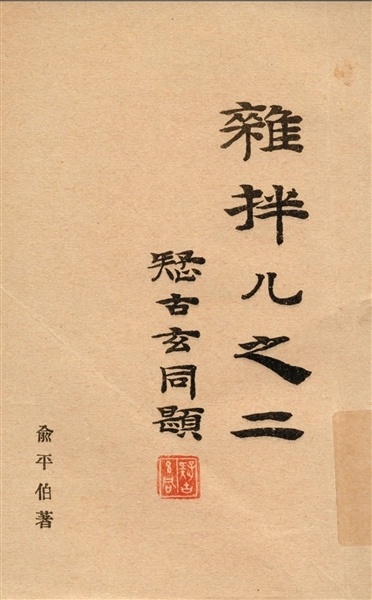 雜拌儿之二
疑古玄同題
俞平伯著